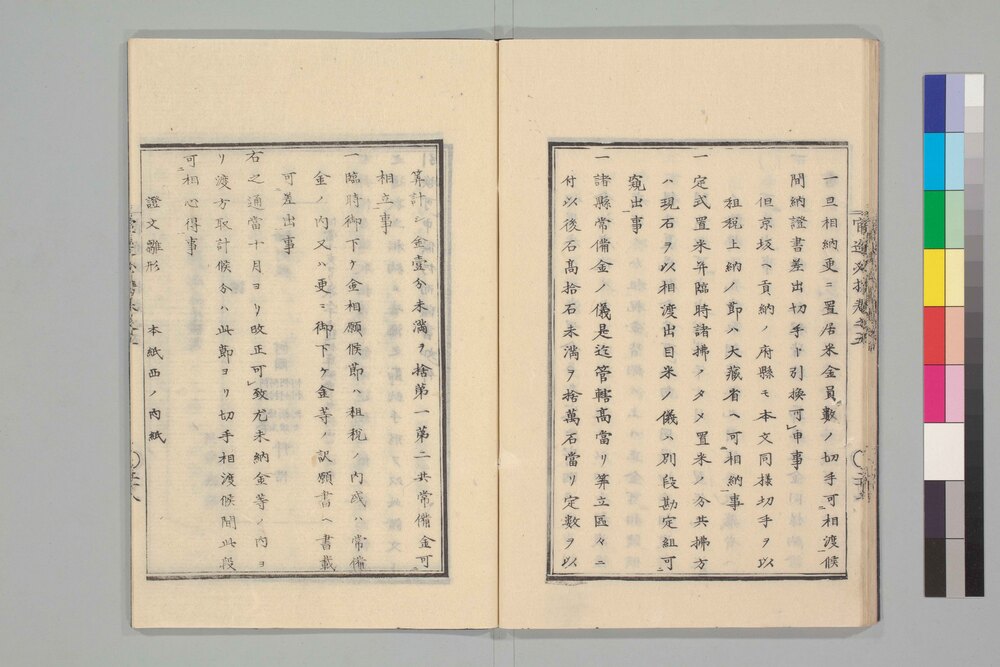 一旦相納更ニ置居米金員數ノ切手可相渡候
間納證書差出切手ト引換可申事
但京坂ヘ貢納ノ府縣モ本文同樣切手ヲ以
租稅上納ノ節ハ大藏省ヘ可相納事
一定式置米幷臨時諸拂ノタメ置米ノ分共拂方
ハ現石ヲ以相渡出目米ノ儀ハ別段勘定組可
窺出事
一諸縣常備金ノ儀是迄管轄高當リ筭立區々ニ
付以後石高拾石未滿ヲ捨萬石當リ定數ヲ以
筭計シ金壹分未滿ヲ捨第一第二共常備金可
相立事
一臨時御下ケ金相願候節ハ租稅ノ內或ハ常備
金ノ內又ハ更ニ御下ケ金等ノ訳願書ヘ書載
可差出事
右之通當十月ヨリ改正可致尤未納金等ノ內ヨ
リ渡方取計候分ハ此節ヨリ切手相渡候間此段
可相心得事
證文雛形　本紙西ノ內紙